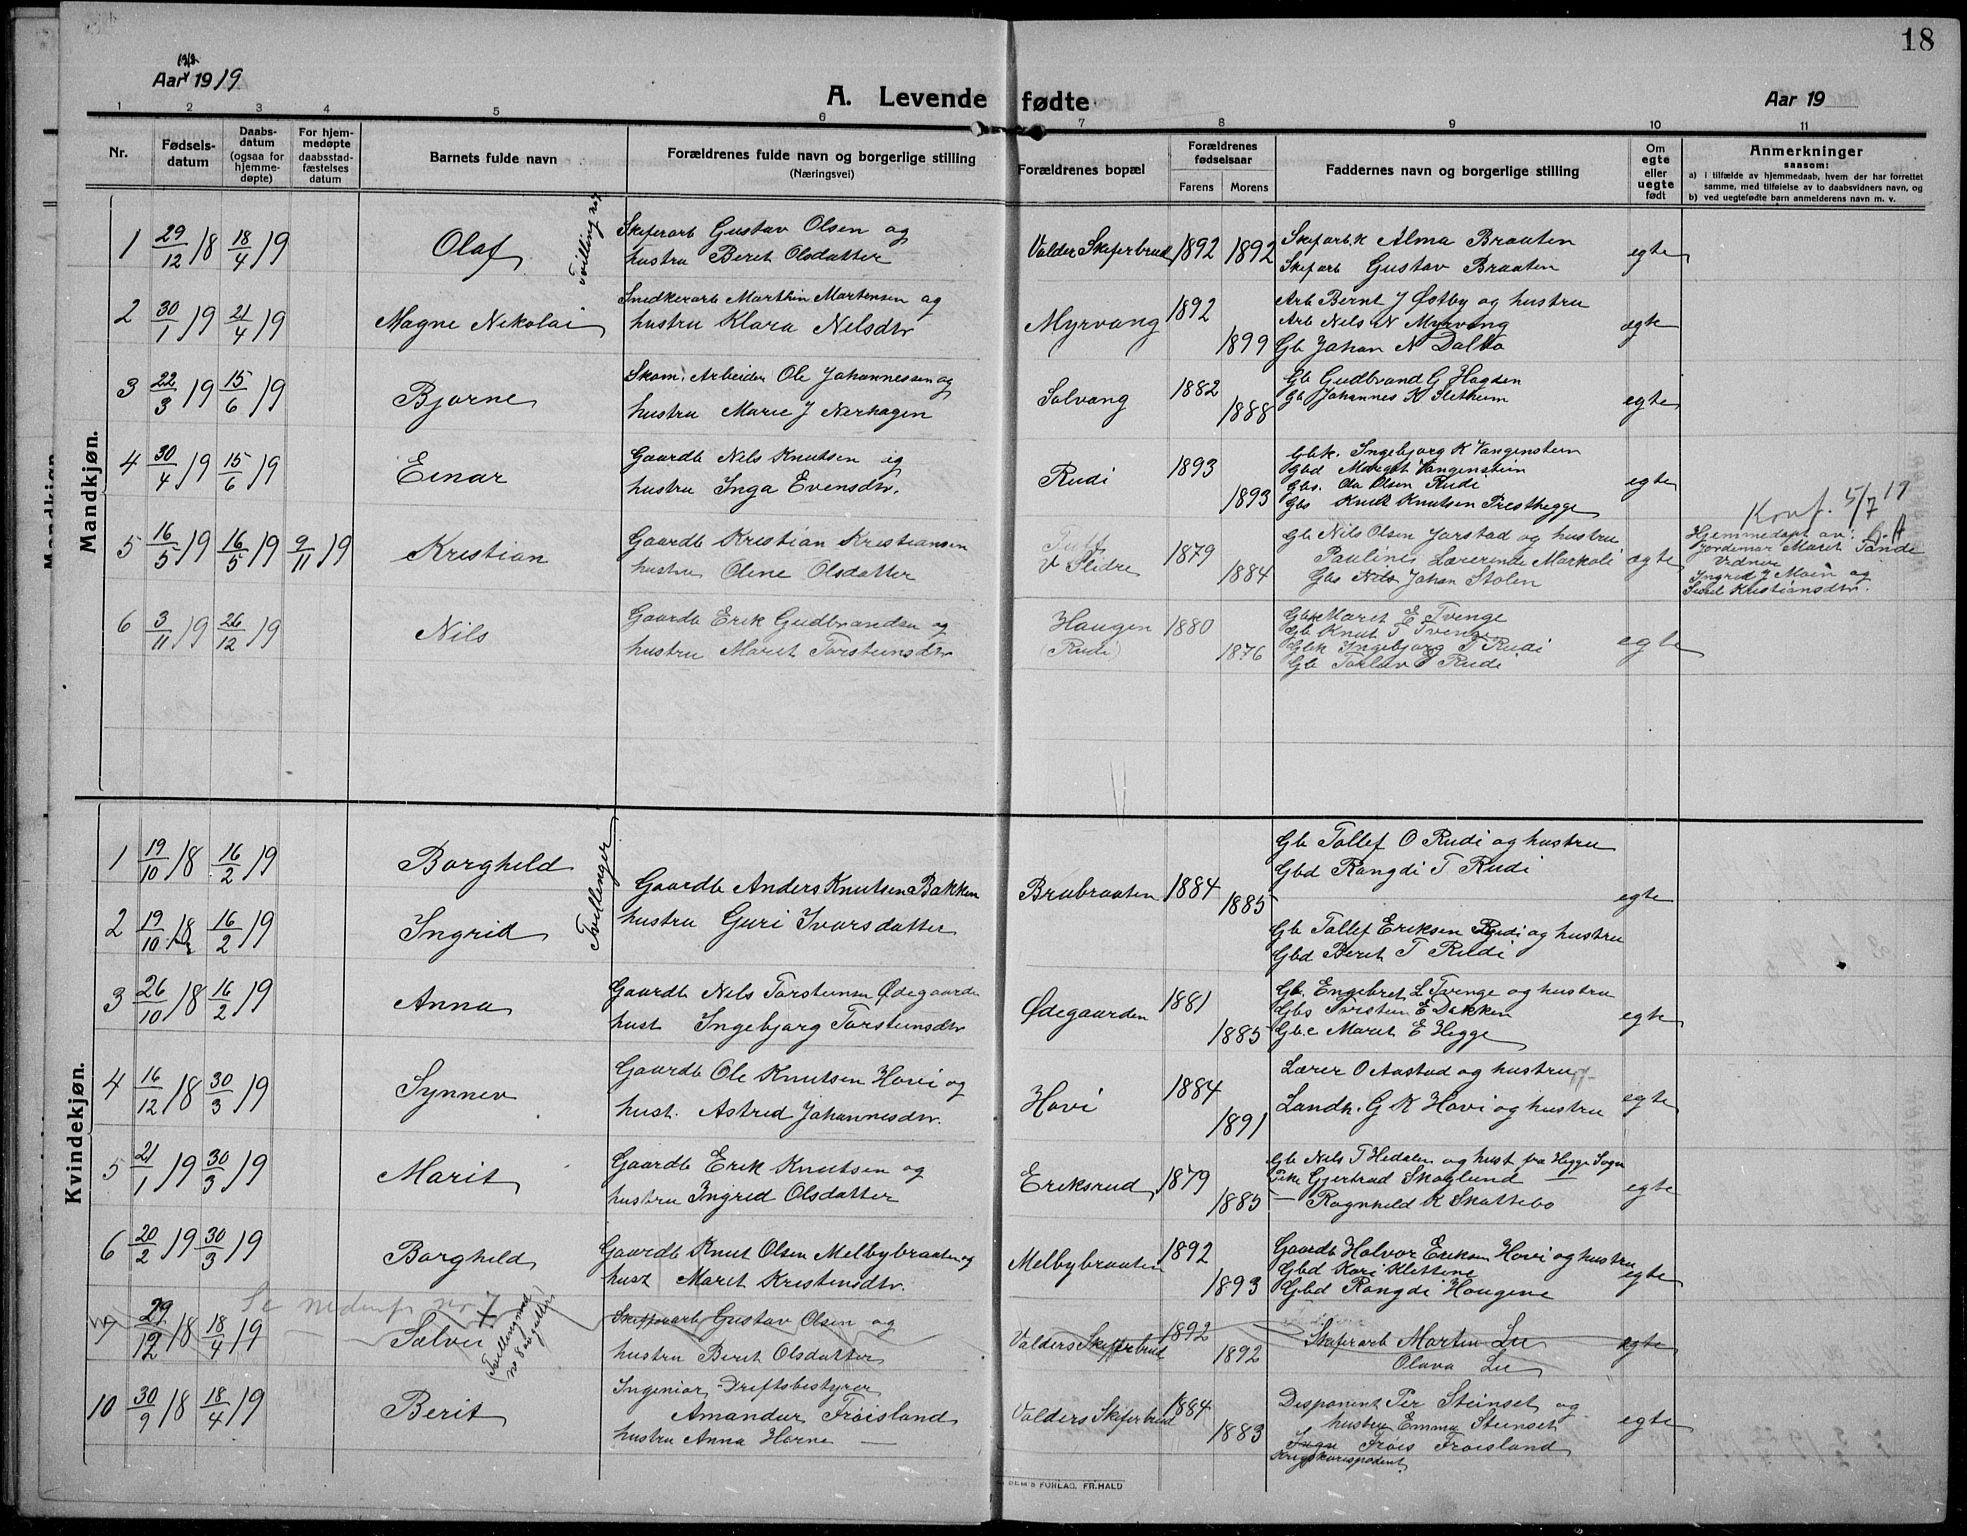 18
1918
Aar 1919
A. Levende fødte
Aar 19
1 2 3 4 5 6 7 8 9 10 11
Nr.
Fødsels-datum
Daabs-datum (ogsaa for hjemme-døpte)
For hjem-medøpte daabsstad-fæstelses datum
Barnets fulde navn
Forældrenes fulde navn og borgerlige stilling
(Næringsvei)
Forældrenes bopæl
Forældrenes fødselsaar
Farens Morens
Faddernes navn og borgerlige stilling
Om egte eller uegte født
Anmerkninger
saasom:
a) i tilfælde av hjemmedaab, hvem der har forrettet
samme, med tilføielse av to daabsvidners navn, og
b) ved uegtefødte barn anmelderens navn m. v.
Mandkjøn.
1 29/12 18 18/4 19 Olaf Skiferarb Gustav Olsen og Valder Skiferbrud 1892 1892 Skifarb.k Alma Braaten egte
hustru Beret Olsdatter Skifarb Gustav Braaten
2 30/1 19 21/4 19 Magne Nikolai Snedkerarb Marthin Martensen og Myrvang 1892 Arb Bernt J Østby og hustru ægte
hustru Klara Nelsdtr 1899 Arb Nils N Myrvang
Gb Johan N Dalbo
3 22/3 19 15/6 19 Bjarne Skom. Arbeider Ole Johannessen og Solvang 1882 Gb Gudbrand G Hagden egte
hustru Marie J Nerhagen 1888 Gb Johannes K Sletheim
4 30/4 19 15/6 19 Einar Gaardb Nils Knutsen og Rudi 1893 Gbk. Ingebjorg K Vangenstein egte
hustru Inga Evensdtr. 1893 Gbd Marget Vangenstein
Gbs. Ola Olsen Rudi
Gbs Knut Knutsen Presthegge
Konf. 5/7 19
5 16/5 19 16/5 19 9/11 19 Kristian Gaardb Kristian Kristiansen V Slidre 1879 Gb Nils Olsen Jarstad og hustru ægte Hjemmedøpt av:
hustru Oline Olsdatter 1884 Pauline Lærerinde Markoli Jordemor Marit Tande
Gbs Nils Johan Stolen Vidner
Ingrid J Moin og
Sissel Kristiansdtr.
6 3/11 19 26/12 19 Nils Gaardb Erik Gudbrandsen og Haugen 1880 Gbk Maret E Tvenge egte
hustru Marit Torsteinsdtr (Rudi) 1876 Gb Knut T Tvenge
Gbk Ingebjorg T Rudi
Gb Torlav E Rudi
Kvindekjøn.
Tvillinger
1 19/10 18 16/2 19 Borghild Gaardb Anders Knutsen Bakken Brubraaten 1884 Gb Tollef O Rudi og hustru
Gbd Rangdi T Rudi
2 19/10 18 16/2 19 Ingrid hustru Guri Ivarsdatter 1885 egte
Gb Tollef Eriksen Rudi og hustru
Gbd Beret T Rudi
3 26/10 18 16/2 19 Anna Gaardb Nils Torsteinsn Ødegaarden Ødegaarden 1881 Gb. Engebret L Tvenge og hustru egte
hust Ingebjorg Torsteinsdtr 1885 Gbs Torstein E Bakken
Gb.e Marit E Hegge
4 16/12 18 30/3 19 Synnev Gaardb Ole Knutsen Hovi og Hovi 1884 Lærer O Aastad og hustru egte
hust. Astrid Johannesdtr. 1891 Landh. G K Hovi og hustru
5 21/1 19 30/3 19 Marit Gaardb Erik Knutsen og Eriksrud 1879 Gb Nils T Hedalen og hust fra Hegge Sogn egte
hustru Ingrid Olsdatter 1885 Gjertrud Skoglund
— Ragnhild K Skattebo
6 20/2 19 30/3 19 Borghild Gaardb Knut Olsen Melbybraaten og Melbybraaten 1892 Gaardb Halvor Eriksen Hovi og hustru egte
hust Marit Kristensdtr. 1893 Gbd Kari Klettene
Gbd Rangdi Haugene
Se nedenf. no 7
29/12 18 18/4 19 Sølvei Skifferarb Gustav Olsen og Valders Skifferbrud 1892 Skiferarb Martin Lie egte
hustru Beret Olsdatter 1892 Olava Lie
(Tvilling med
10 30/9 18 18/4 19 Berit Ingeniør - Driftsbestyrer Valders Skiferbrud 1884 Disponent Per Steinset og egte
Amandur Frøisland 1883 hustru Emma Steinset
hustru Anna Horne — Frøis Frøisland
Krigskorrespondent
FORLAG. FR. HALD